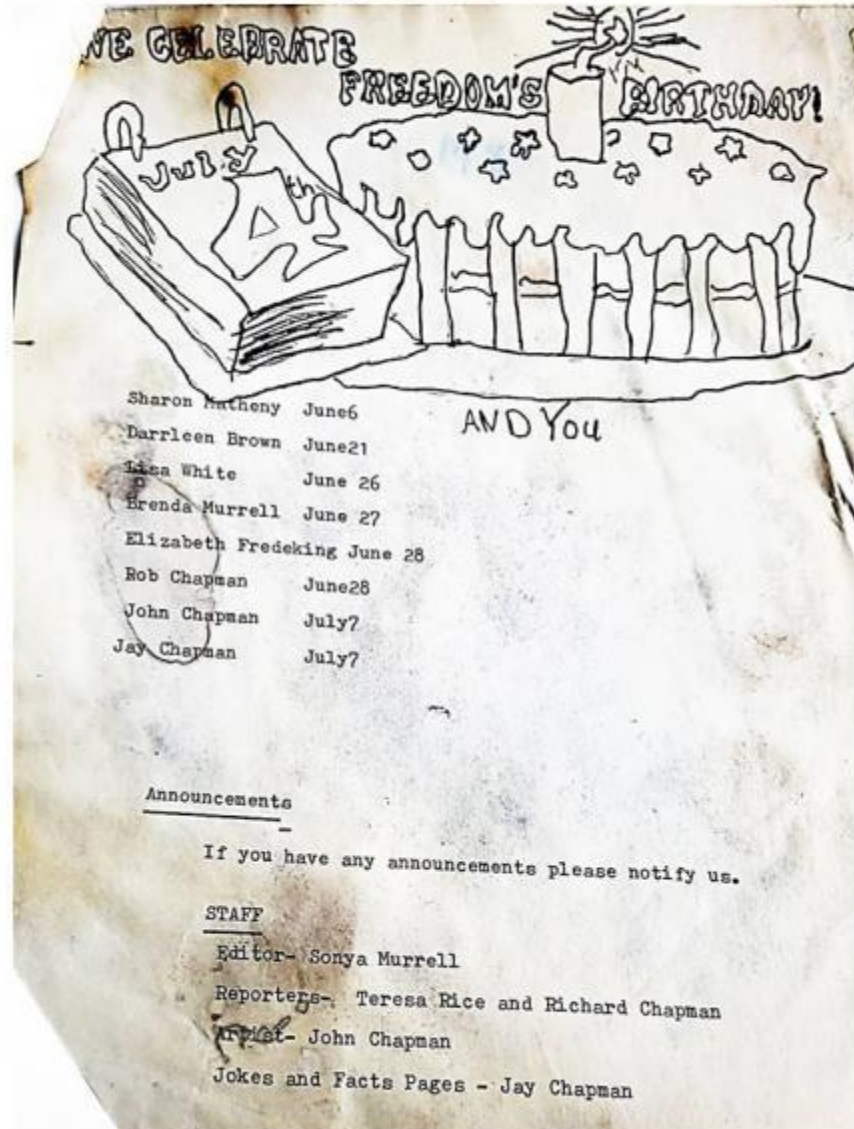 WE CELEBRATE
FREEDOM'S BIRTHDAY!
July
4th
AND You
Sharon Matheny June6
Darrleen Brown June21
Lisa White June 26
Brenda Murrell June 27
Elizabeth Fredeking June 28
Rob Chapman June28
John Chapman July7
Jay Chapman July7
Announcements
If you have any announcements please notify us.
STAFF
Editor- Sonya Murrell
Reporters- Teresa Rice and Richard Chapman
Artist- John Chapman
Jokes and Facts Pages - Jay Chapman